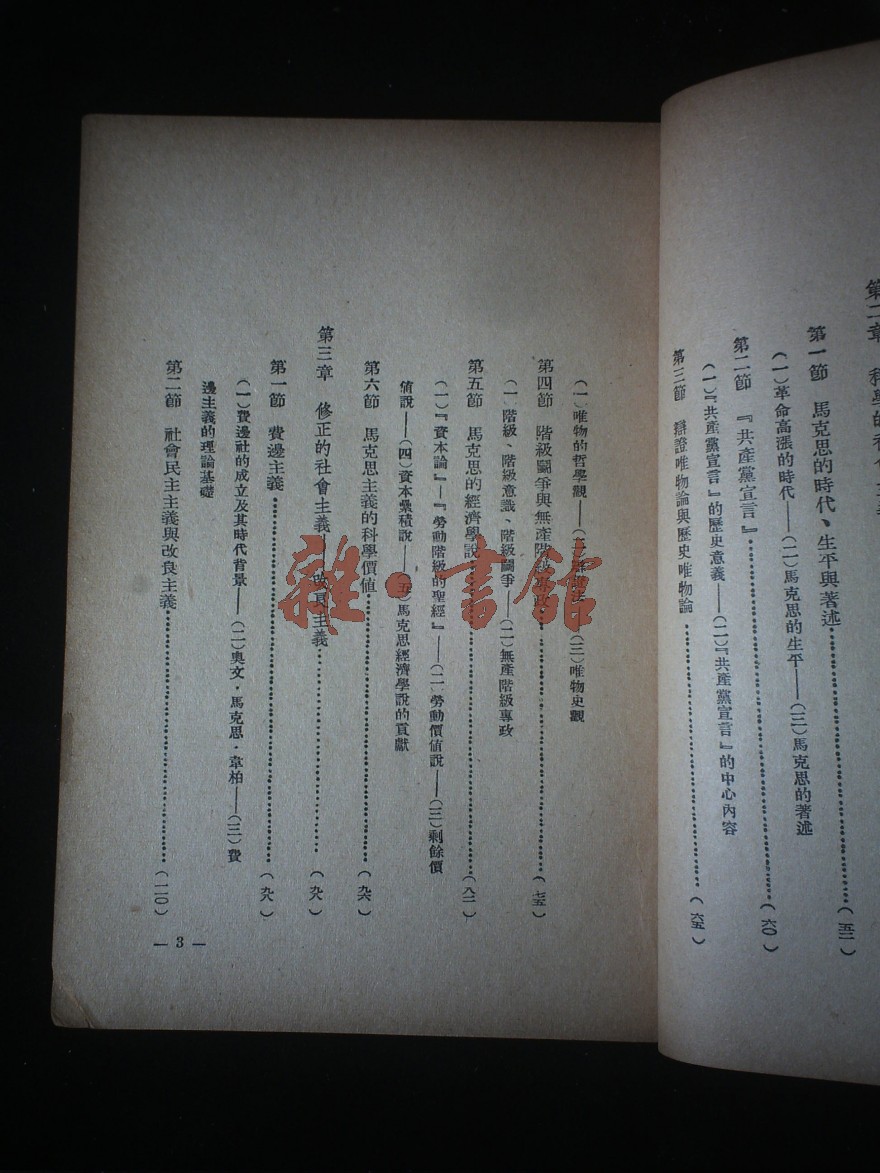 第二章 科學的社會主義
第一節 馬克思的時代、生平與著述………(五二)
(一)革命高漲的時代——(二)馬克思的生平——(三)馬克思的著述
第二節 『共產黨宣言』………(六〇)
(一)『共產黨宣言』的歷史意義——(二)『共產黨宣言』的中心內容
第三節 辯證唯物論與歷史唯物論………(六五)
(一)唯物的哲學觀——(二)辯證法——(三)唯物史觀
第四節 階級鬭爭與無產階級專政………(七五)
(一)階級、階級意識、階級鬭爭——(二)無產階級專政
第五節 馬克思的經濟學說………(八二)
(一)『資本論』—『勞動階級的聖經』——(二)勞動價値說——(三)剩餘價
値說——(四)資本纍積說——(五)馬克思經濟學說的貢獻
第六節 馬克思主義的科學價値………(九六)
第三章 修正的社會主義——改良主義………(九八)
第一節 費邊主義………(九八)
(一)費邊社的成立及其時代背景——(二)奧文・馬克思・韋柏——(三)費
邊主義的理論基礎
第二節 社會民主主義與改良主義………(一一〇)
— 3 —
雜・書館